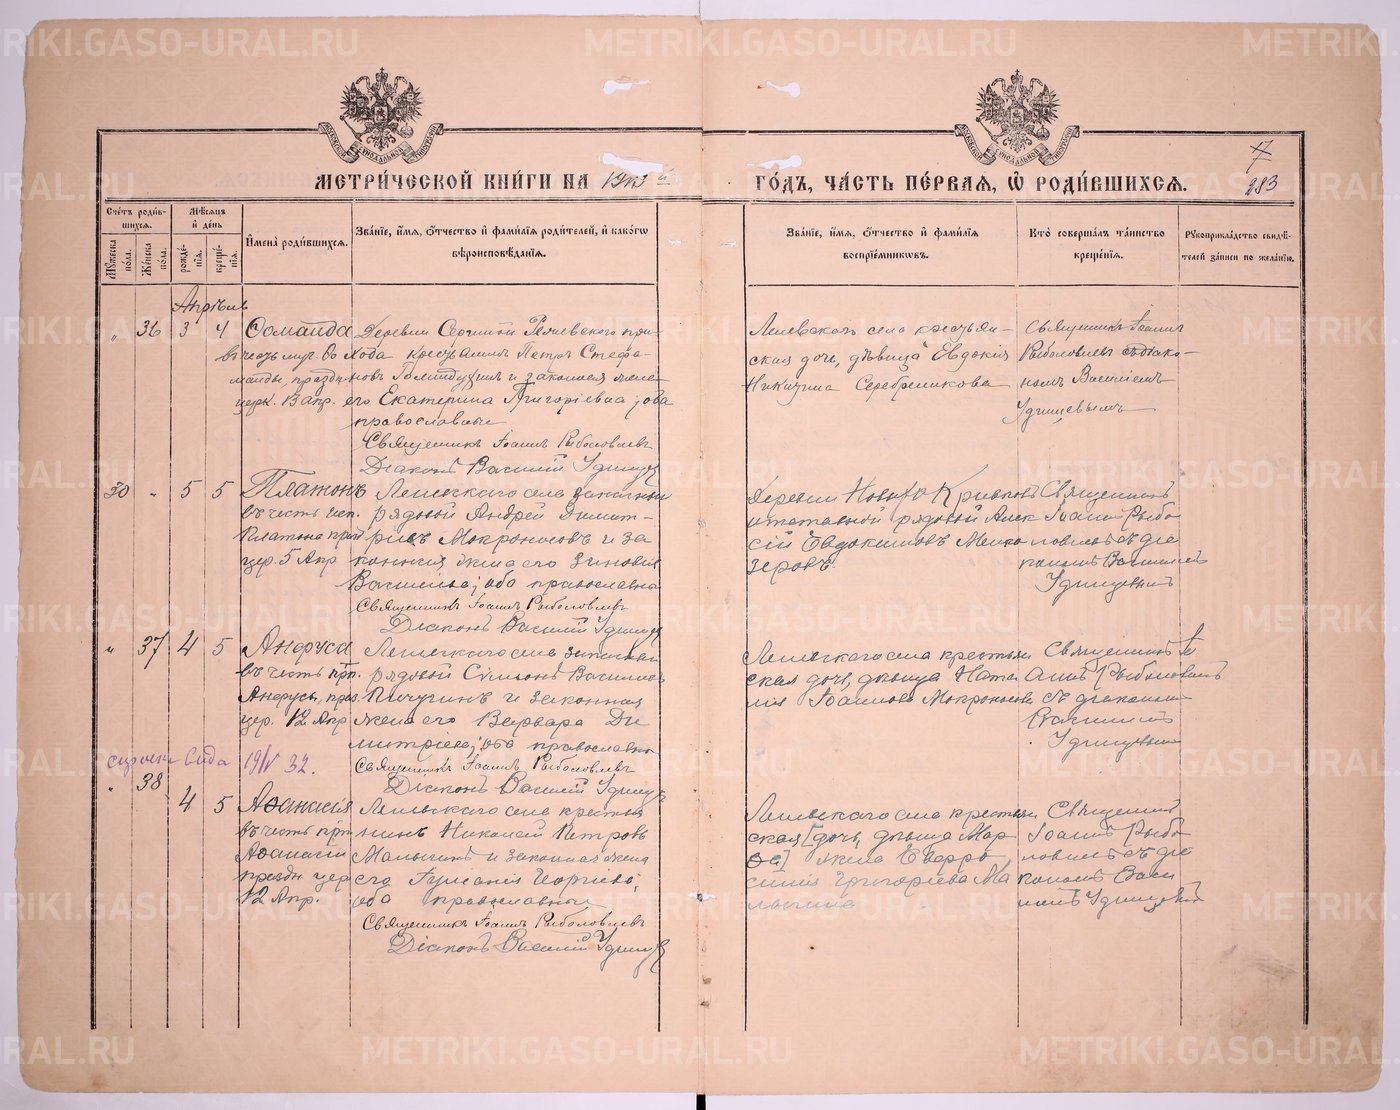 МЕТРИ́ЧЕСКОЙ КНИ́ГИ НА 1903 й ГО́ДЪ, ЧА́СТЬ ПЕ́РВАЯ, Ѿ РОДИ́ВШИХСЯ.
17
283
Сче́тъ роди́в-
шихся.
Му́жеска по́ла.
Же́нска по́ла.
Мѣ́сяцъ и де́нь
рожде́-
нїя.
креще́-
нїя.
Имена̀ роди́вшихся.
Зва́нїе, и́мя, о́тчество и фами́лїя роди́телей, и како́гѡ
вѣроисповѣ́данїя.
Зва́нїе, и́мя, о́тчество и фами́лїя
воспрїе́мниковъ.
Кто̀ соверша́лъ та́инство
креще́нїя.
Рукоприкла́дство свидѣ́-
телей за́писи по жела́нїю.
Апрѣль
" 36 3 4 Сомаида
въ честь муч. Ѳо
маиды, праздн.
церк. 13 апр.
Деревни Сергиной при-
хода крестьянинъ Петръ Стефа-
новъ и законная жена
его Екатерина Григорiевна, оба
православные
Священникъ Iоаннъ Рыболовлевъ
Дiаконъ Василiй Удинцев
села крестьян-
ская дочь, дѣвица Евдокiя
Никитина Серебреникова
Священникъ Iоаннъ
Рыболовлевъ съ дiако-
номъ Василiемъ
Удинцевымъ
30 " 5 5 Платонъ
въ честь исп.
Платона празд
цер. 5 Апр
села запасный
рядовой Андрей Димит-
рiевъ Мокроносовъ и за
конная жена его Зиновiя
Васильева; оба православные
Священникъ Iоаннъ Рыболовлевъ
Дiаконъ Василiй Удинцев
Деревни
рядовой Алек
сiй Евдокимовъ Мелко
зеровъ
Священникъ
Iоаннъ Рыбо
ловлевъ съ дiа
кономъ Василiемъ
Удинцевымъ
" 37 4 5 Анфуса
въ честь прп.
Анфусы, праз
цер. 12 Апр
села запасный
рядовой Симеонъ Василiевъ
Пичугинъ и законная
жена его Варвара Ди
митрiева; оба православные
Священникъ Iоаннъ Рыболовлевъ
Дiаконъ Василiй Удинцев
села крестьян
ская дочь, дѣвица Ната
лiя Iоаннова Мокроносова
Священникъ Iо
аннъ Рыболовлевъ
съ дiакономъ
Василiемъ
Удинцевымъ
19/IV 32.
" 38 4 5 Аѳанасiя
въ честь прп
Аѳанасiи
праздн цер
12 Апр.
села крестья
нинъ Николай Петровъ
Малыгинъ и законная жена
его Георгiева,
оба православные
Священникъ Iоаннъ Рыболовлевъ
Дiаконъ Василiй Удинцев
села крестьян
ская [дочь, дѣвица Мар
ѳа] жена Евфро
синiя Григорiева Ма
лыгина
Священникъ
Iоаннъ Рыбо
ловлевъ съ дiа
кономъ Васи
лiемъ Удинцевымъ
METRIKI.GASO-URAL.RU